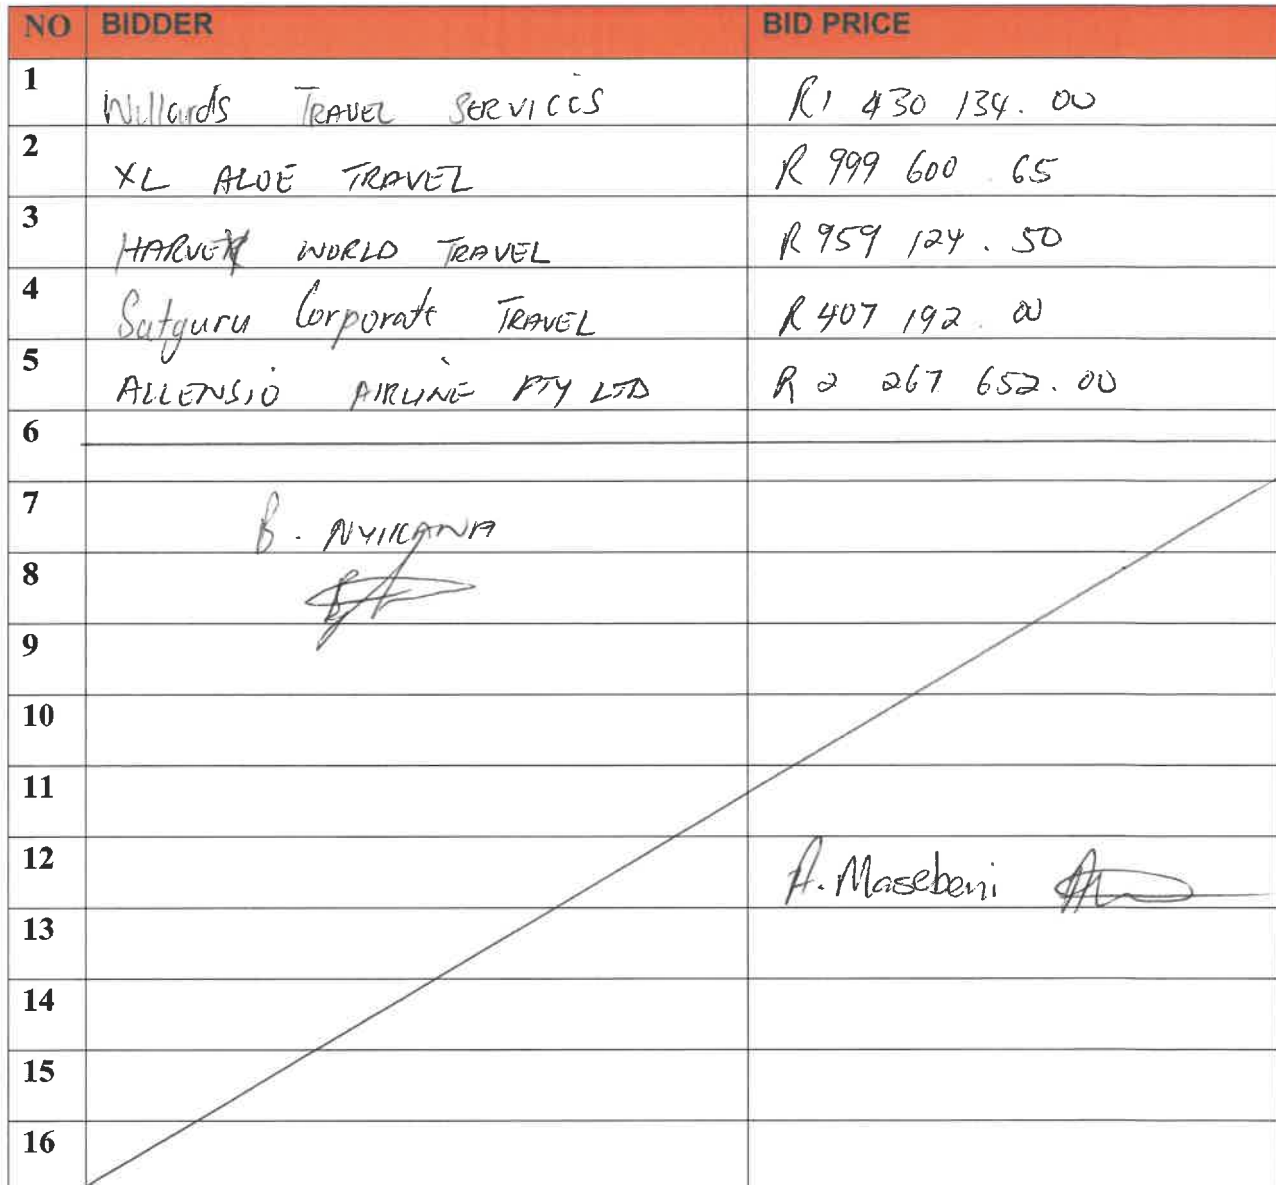 NO BIDDER BID PRICE
1 Willards TRAVEL SERVICES R1 430 134.00
2 XL ALOE TRAVEL R 999 600.65
3 HARVEY WORLD TRAVEL R 959 124.50
4 Satguru Corporate TRAVEL R 407 192.00
5 ALLENSIO AIRLINE PTY LTD R 2 267 652.00
6
7 B. NYIKANA
8
9
10
11
12 A. Masebeni
13
14
15
16